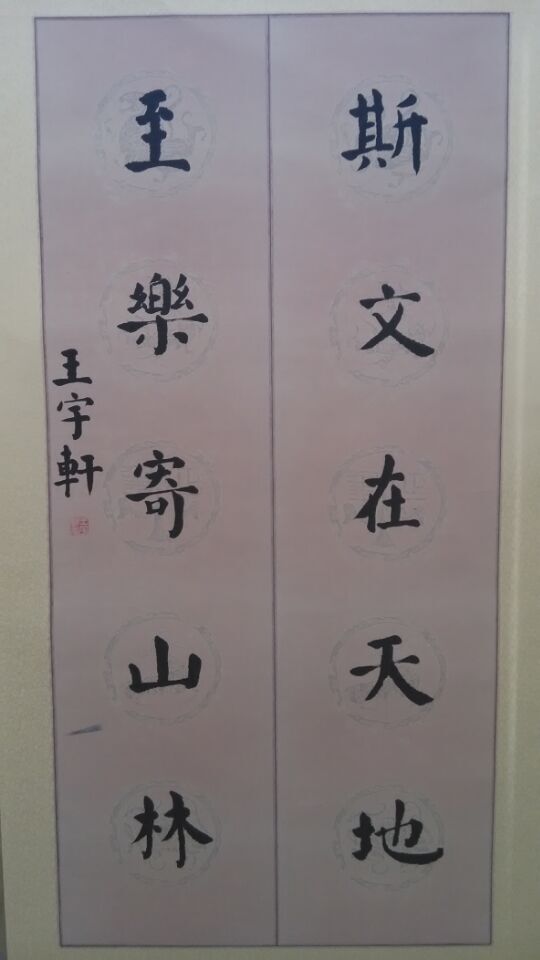 斯文在天地
至樂寄山林
王宇軒